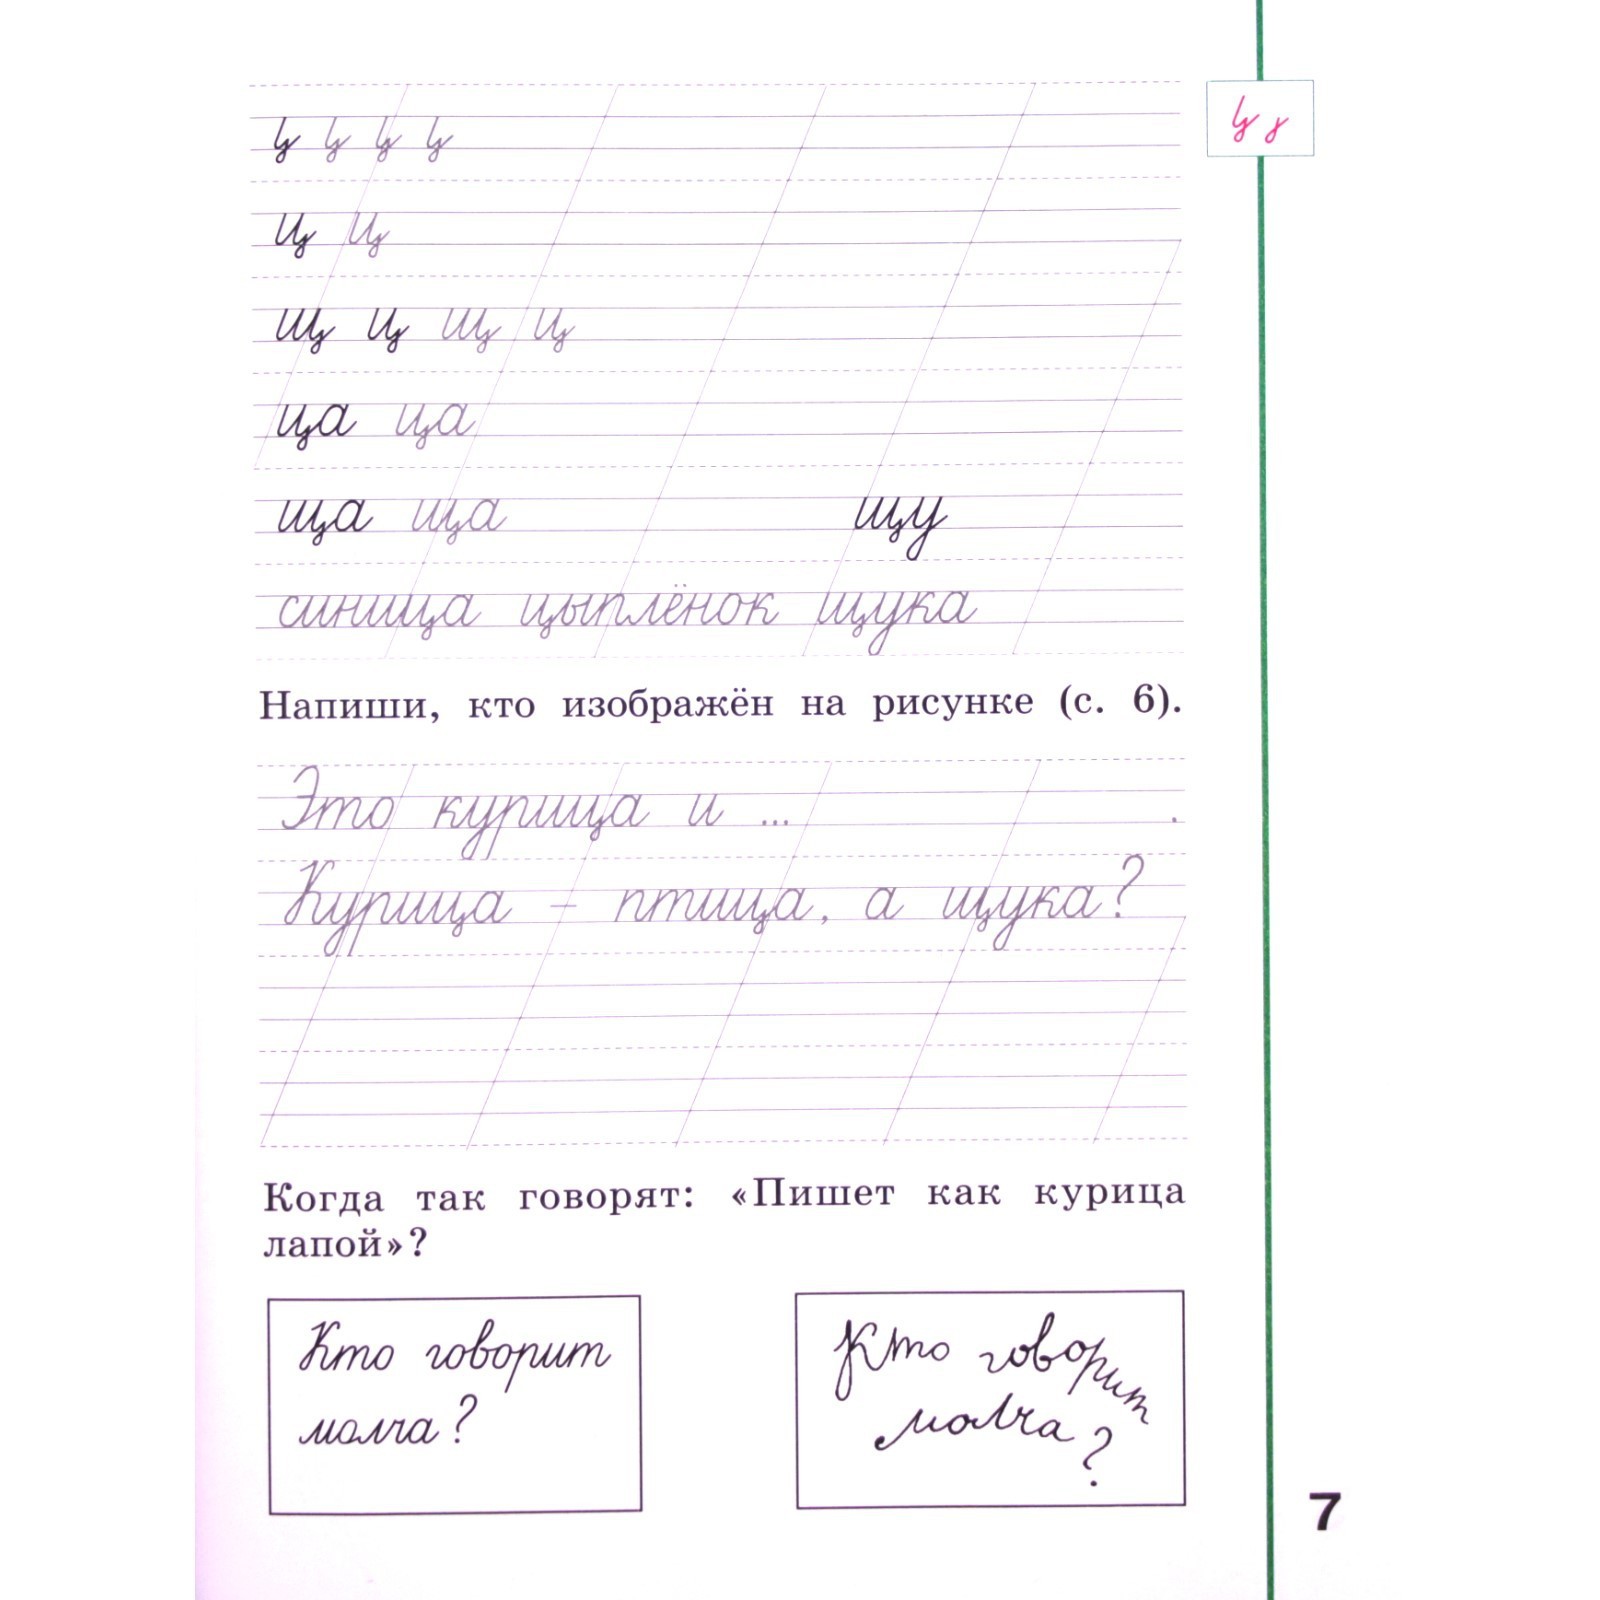 ц ц
щ ц щ ц
ца ца
ща ща щу
синица цыплёнок щука
Напиши, кто изображён на рисунке (с. 6).
Это курица и ... .
Курица – птица, а щука?
Когда так говорят: «Пишет как курица
лапой»?
Кто говорит
молча?
Кто говорит
молча?
7